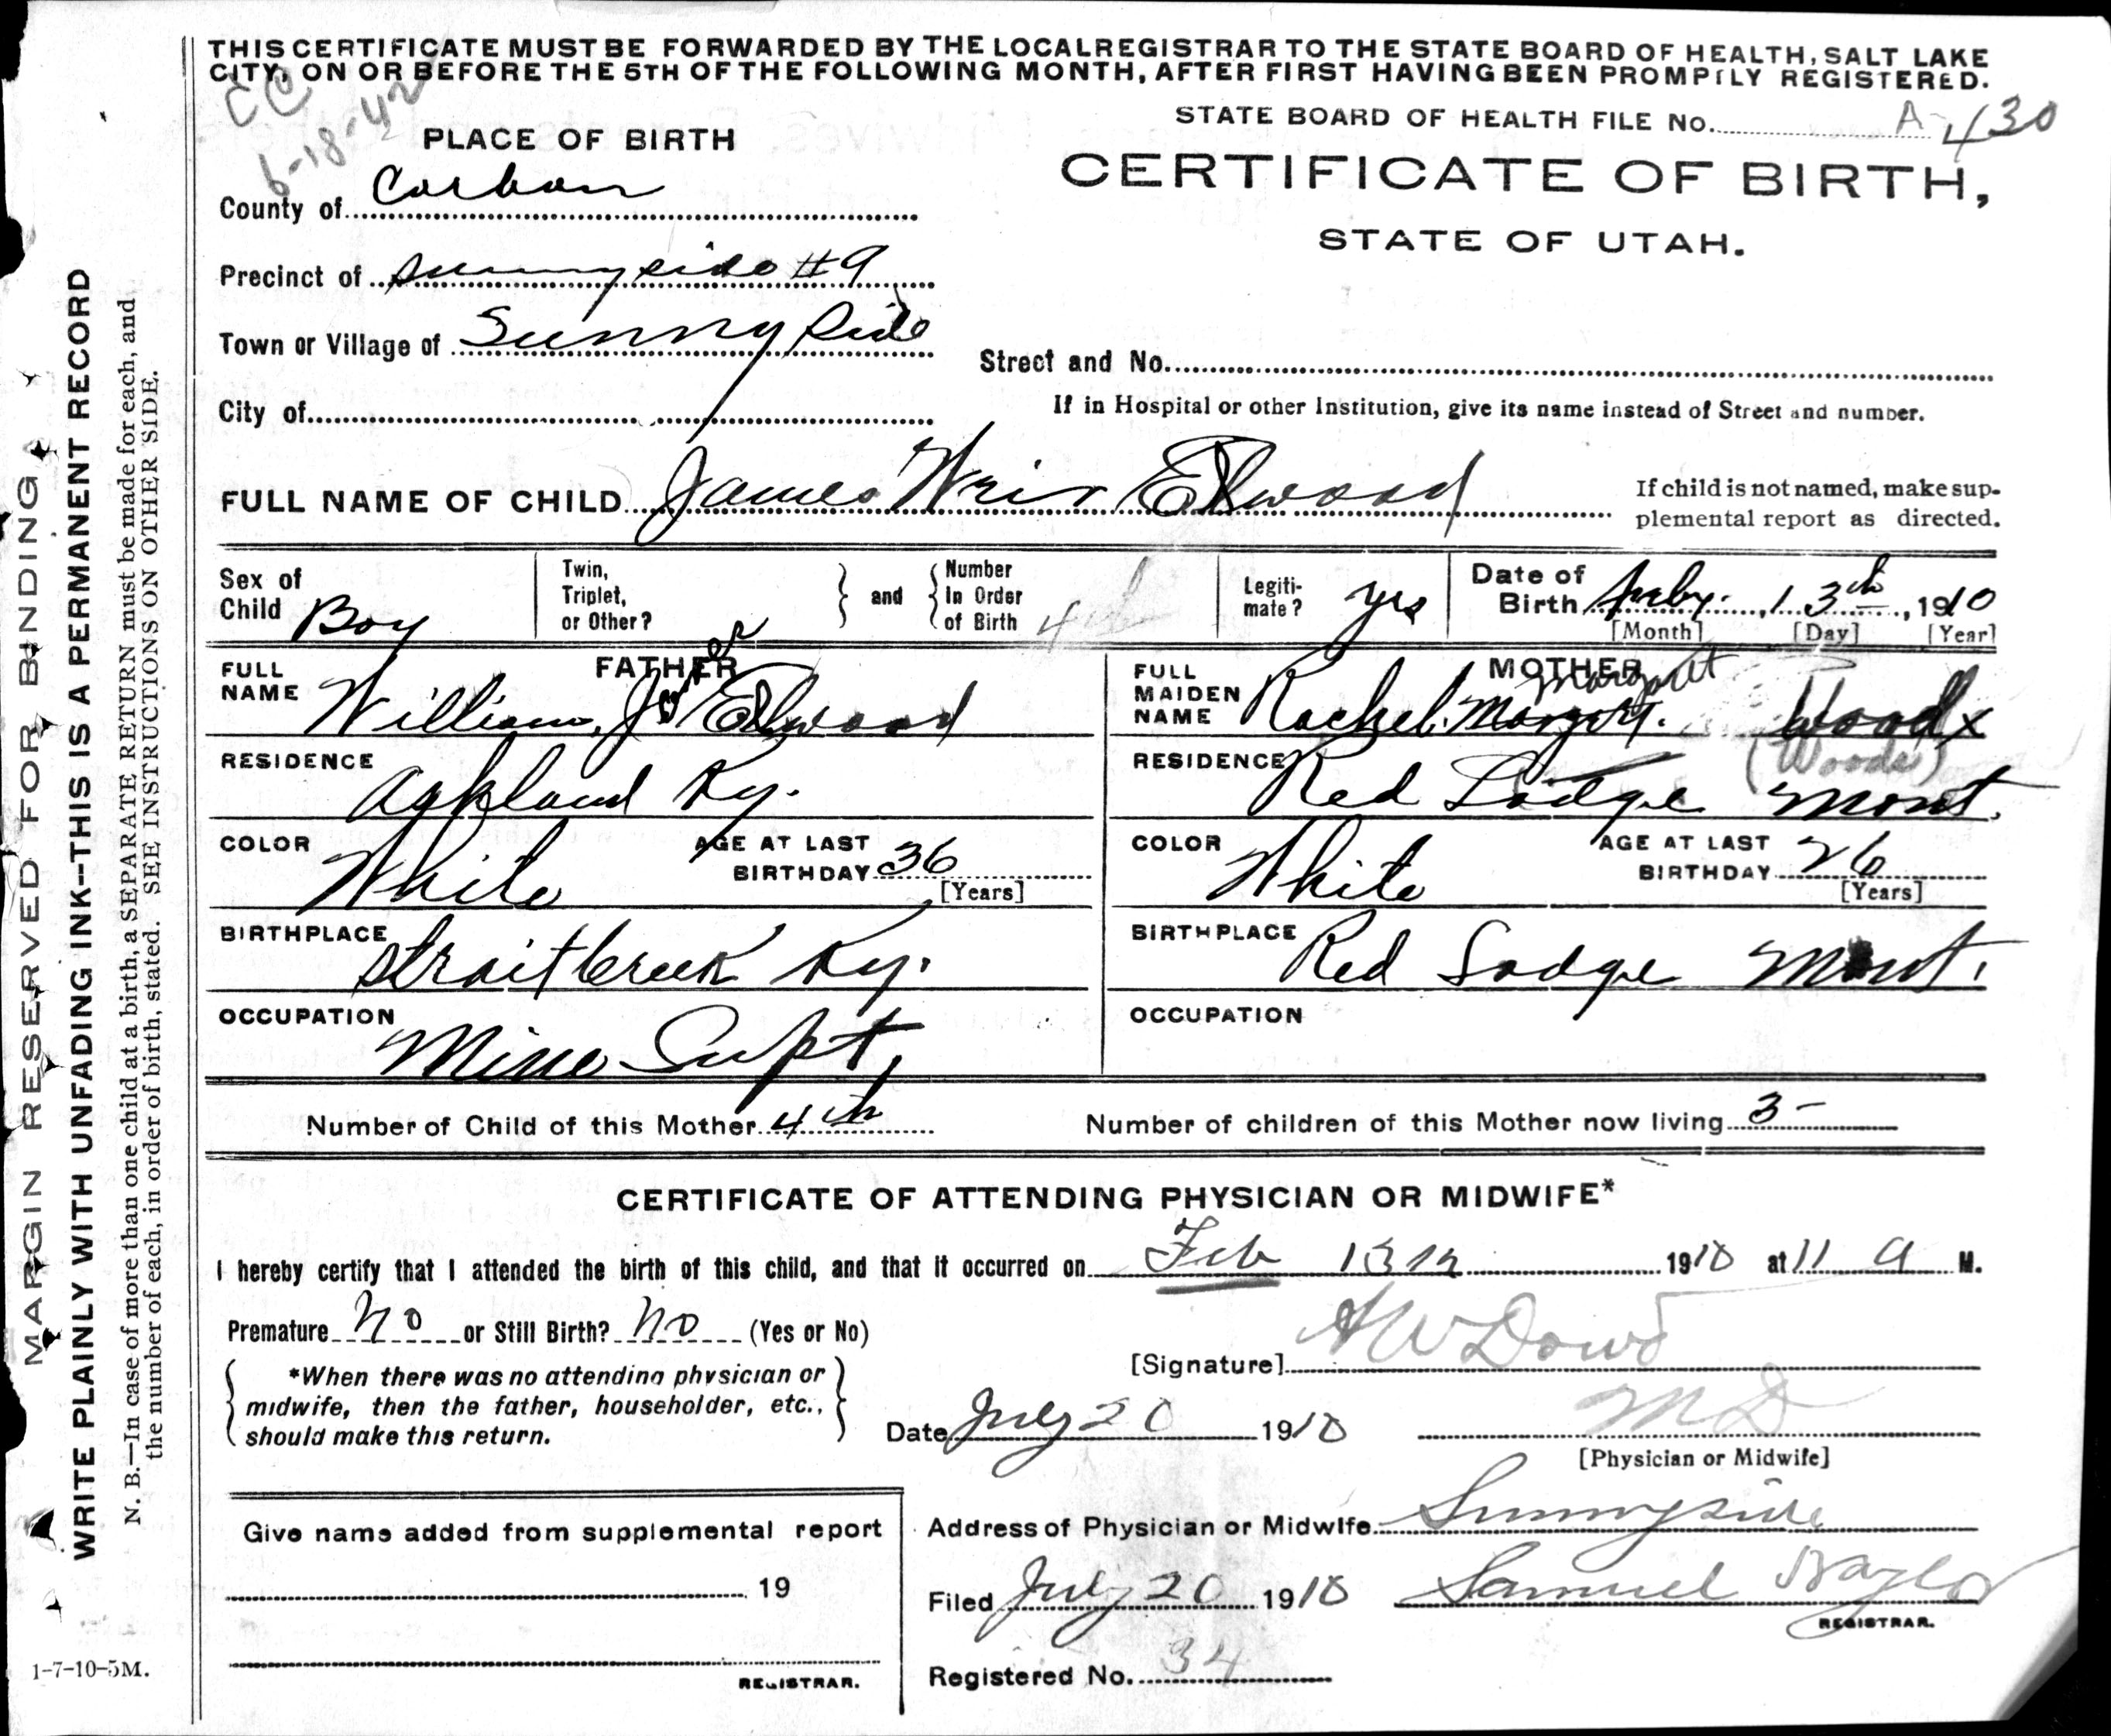 THIS CERTIFICATE MUST BE FORWARDED BY THE LOCAL REGISTRAR TO THE STATE BOARD OF HEALTH, SALT LAKE
CITY, ON OR BEFORE THE 5TH OF THE FOLLOWING MONTH, AFTER FIRST HAVING BEEN PROMPTLY REGISTERED.
CC
6-18-42
STATE BOARD OF HEALTH FILE No. A-430
CERTIFICATE OF BIRTH,
STATE OF UTAH.
PLACE OF BIRTH
County of Carbon
Precinct of Sunnyside #9
Town or Village of Sunnyside
Street and No.
City of
If in Hospital or other Institution, give its name instead of Street and number.
FULL NAME OF CHILD James Weir Elwood
If child is not named, make sup-
plemental report as directed.
Sex of Child Boy
Twin, Triplet, or Other?
and
Number In Order of Birth 4th
Legiti-mate? yes
Date of Birth 13th, 1910
[Month] [Day] [Year]
FATHER
FULL NAME William Elwood
RESIDENCE Ashland Ky.
COLOR White
AGE AT LAST BIRTHDAY 36
[Years]
BIRTHPLACE Strait Creek Ky.
OCCUPATION Mine Supt.
MOTHER
Margaret
FULL MAIDEN NAME Rachel Wood
(Woods)
RESIDENCE Red Lodge Mont.
COLOR White
AGE AT LAST BIRTHDAY 26
[Years]
BIRTHPLACE Red Lodge Mont.
OCCUPATION
Number of Child of this Mother 4th
Number of children of this Mother now living 3-
CERTIFICATE OF ATTENDING PHYSICIAN OR MIDWIFE*
I hereby certify that I attended the birth of this child, and that it occurred on Feb 13th 1910 at 11 a M.
Premature No or Still Birth? No (Yes or No)
*When there was no attending physician or
midwife, then the father, householder, etc.,
should make this return.
[Signature] Dowd
M D
Date July 20 1910
[Physician or Midwife]
Give name added from supplemental report
19
REGISTRAR.
Address of Physician or Midwife Sunnyside
Filed July 20 1910 Samuel Naylor
REGISTRAR.
Registered No. 34
MARGIN RESERVED FOR BINDING
WRITE PLAINLY WITH UNFADING INK--THIS IS A PERMANENT RECORD
N. B.—In case of more than one child at a birth, a SEPARATE RETURN must be made for each, and
the number of each, in order of birth, stated. SEE INSTRUCTIONS ON OTHER SIDE.
1-7-10-5M.